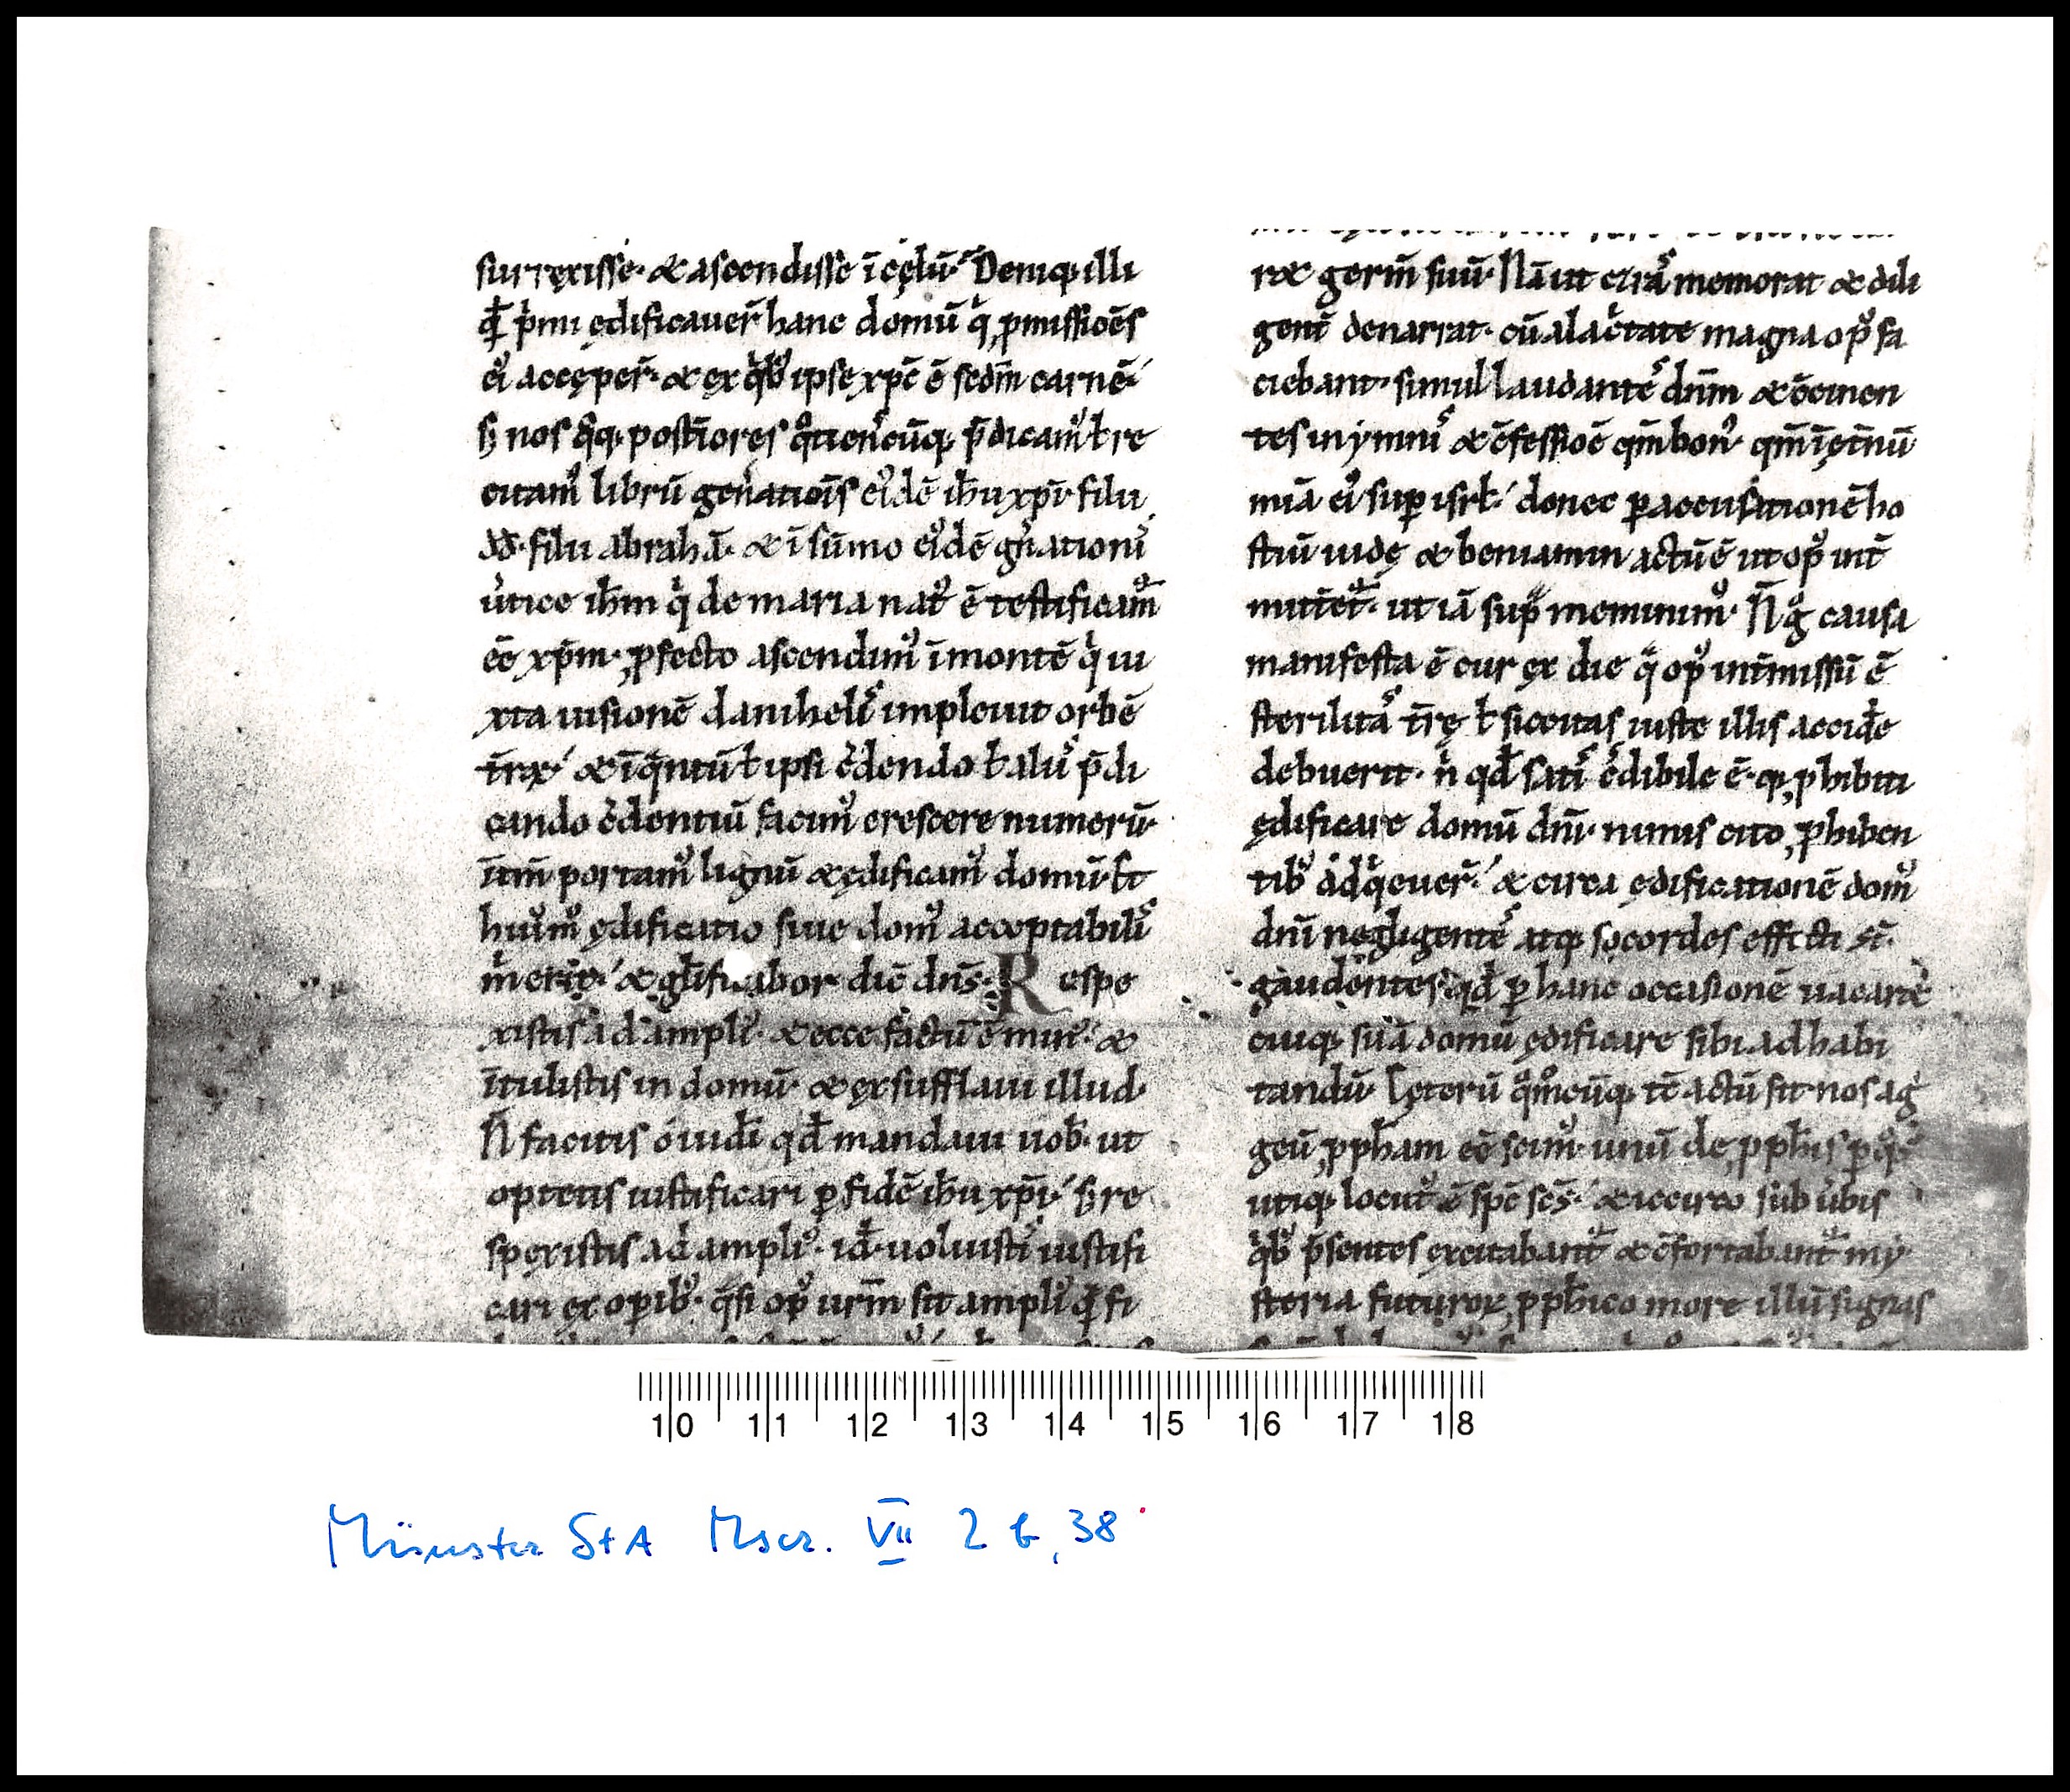 surrexisse· & ascendisse ī cęlū· Deniq; illi
q̄ p̄mi ędificauer̄ hanc domū q̇ ꝓmissiōēs
ei᾽ accęper̄· & ex qͥb᾽ ipse xp̄c ē scdm̄ carnē·
s; nos qͥq; post̄iores qͦtienscūq; p̄dicam᾽ ł re
citam᾽ librū gen̄atiōīs ei᾽dē ih̄u xp̄i· filii
dd̄· filii abrahā· & ī sūmo ei᾽dē gn̄ationis
u̇tice ih̄m q̇ de maria nat᾽ ē testificam᾽
ēē xp̄m· ꝓfecto ascendim᾽ ī montē q̇ iu
xta uisionē danihelis impleuit orbē
t̄rae· & ī qͣntū ł ipsi c̄dendo ł aliis p̄di
cando c̄dentiū facim᾽ crescere numerū·
īt̄m portam᾽ lignū & ędificam᾽ domū· Et
hui᾽m᾽ ędificatio siue dom᾽ acceptabilis
m̍ erit· & gl̄ificabor dic̄ dn̄s· Respe
xistis ad ampli᾽· & ecce factū ē min᾽· &
ītulistis in domū· & exsufflaui illud·
N̄ facitis ó iudęi qd̄ mandaui uob̄· ut
optetis iustificari ꝑ fidē ih̄u xp̄i· s; re
spexistis ad ampli᾽· id̄· uoluistis iustifi
cari ex opib᾽· qͣsi op᾽ ur̄m sit ampli᾽ q̄ fi
rae germ̄ suū· Nā ut esras memorat & dili
gent̄ denarrat· cū alacͥtate magna op᾽ fa
ciebant· simul laudantes dn̄m & c̄cinen
tes in ymnis & c̄fessiōē qm̄ bon᾽ qm̄ ī ęt̄nū
mīa ei᾽ sup isrł· donec ꝑ accusationē ho
stiū iudę & beniamin actū ē ut op᾽ int̄
mitt̄et᾽· ut iā supͣ meminim᾽· N̄ g̊ causa
manifesta ē cur ex die qͣ op᾽ int̄missū ē
sterilitas t̄rę ł siccitas iuste illis accidere
debuerit· n̄ qd̄ satis c̄dibile ē· q; ꝓhibiti
ędificare domū dn̄i· nimis cito ꝓhiben
tib᾽ adqͥeuer̄· & circa ędificationē dom᾽
dn̄i negligentes atq; socordes effecti st̄·
gaudentes qd̄ ꝑ hanc occasionē uacaret
cuiq; suā domū ędificare sibi ad habi
tandū· Cęterū qͦmͦcūq; tc̄ actū sit· nos ag
geū ꝓph̄am ēē scim᾽· unū de ꝓph̄is ꝑ qͦs
utiq; locut᾽ ē sp̄c sc̄s· & iccirco sub u̇bis
qͥb᾽ p̄sentes excitabant᾽ & c̄fortabant᾽ my
steria futuroꝝ ꝓph̄ico more illū signas
10 11 12 13 14 15 16 17 18
Münster StA Mscr. VII 2 b, 38